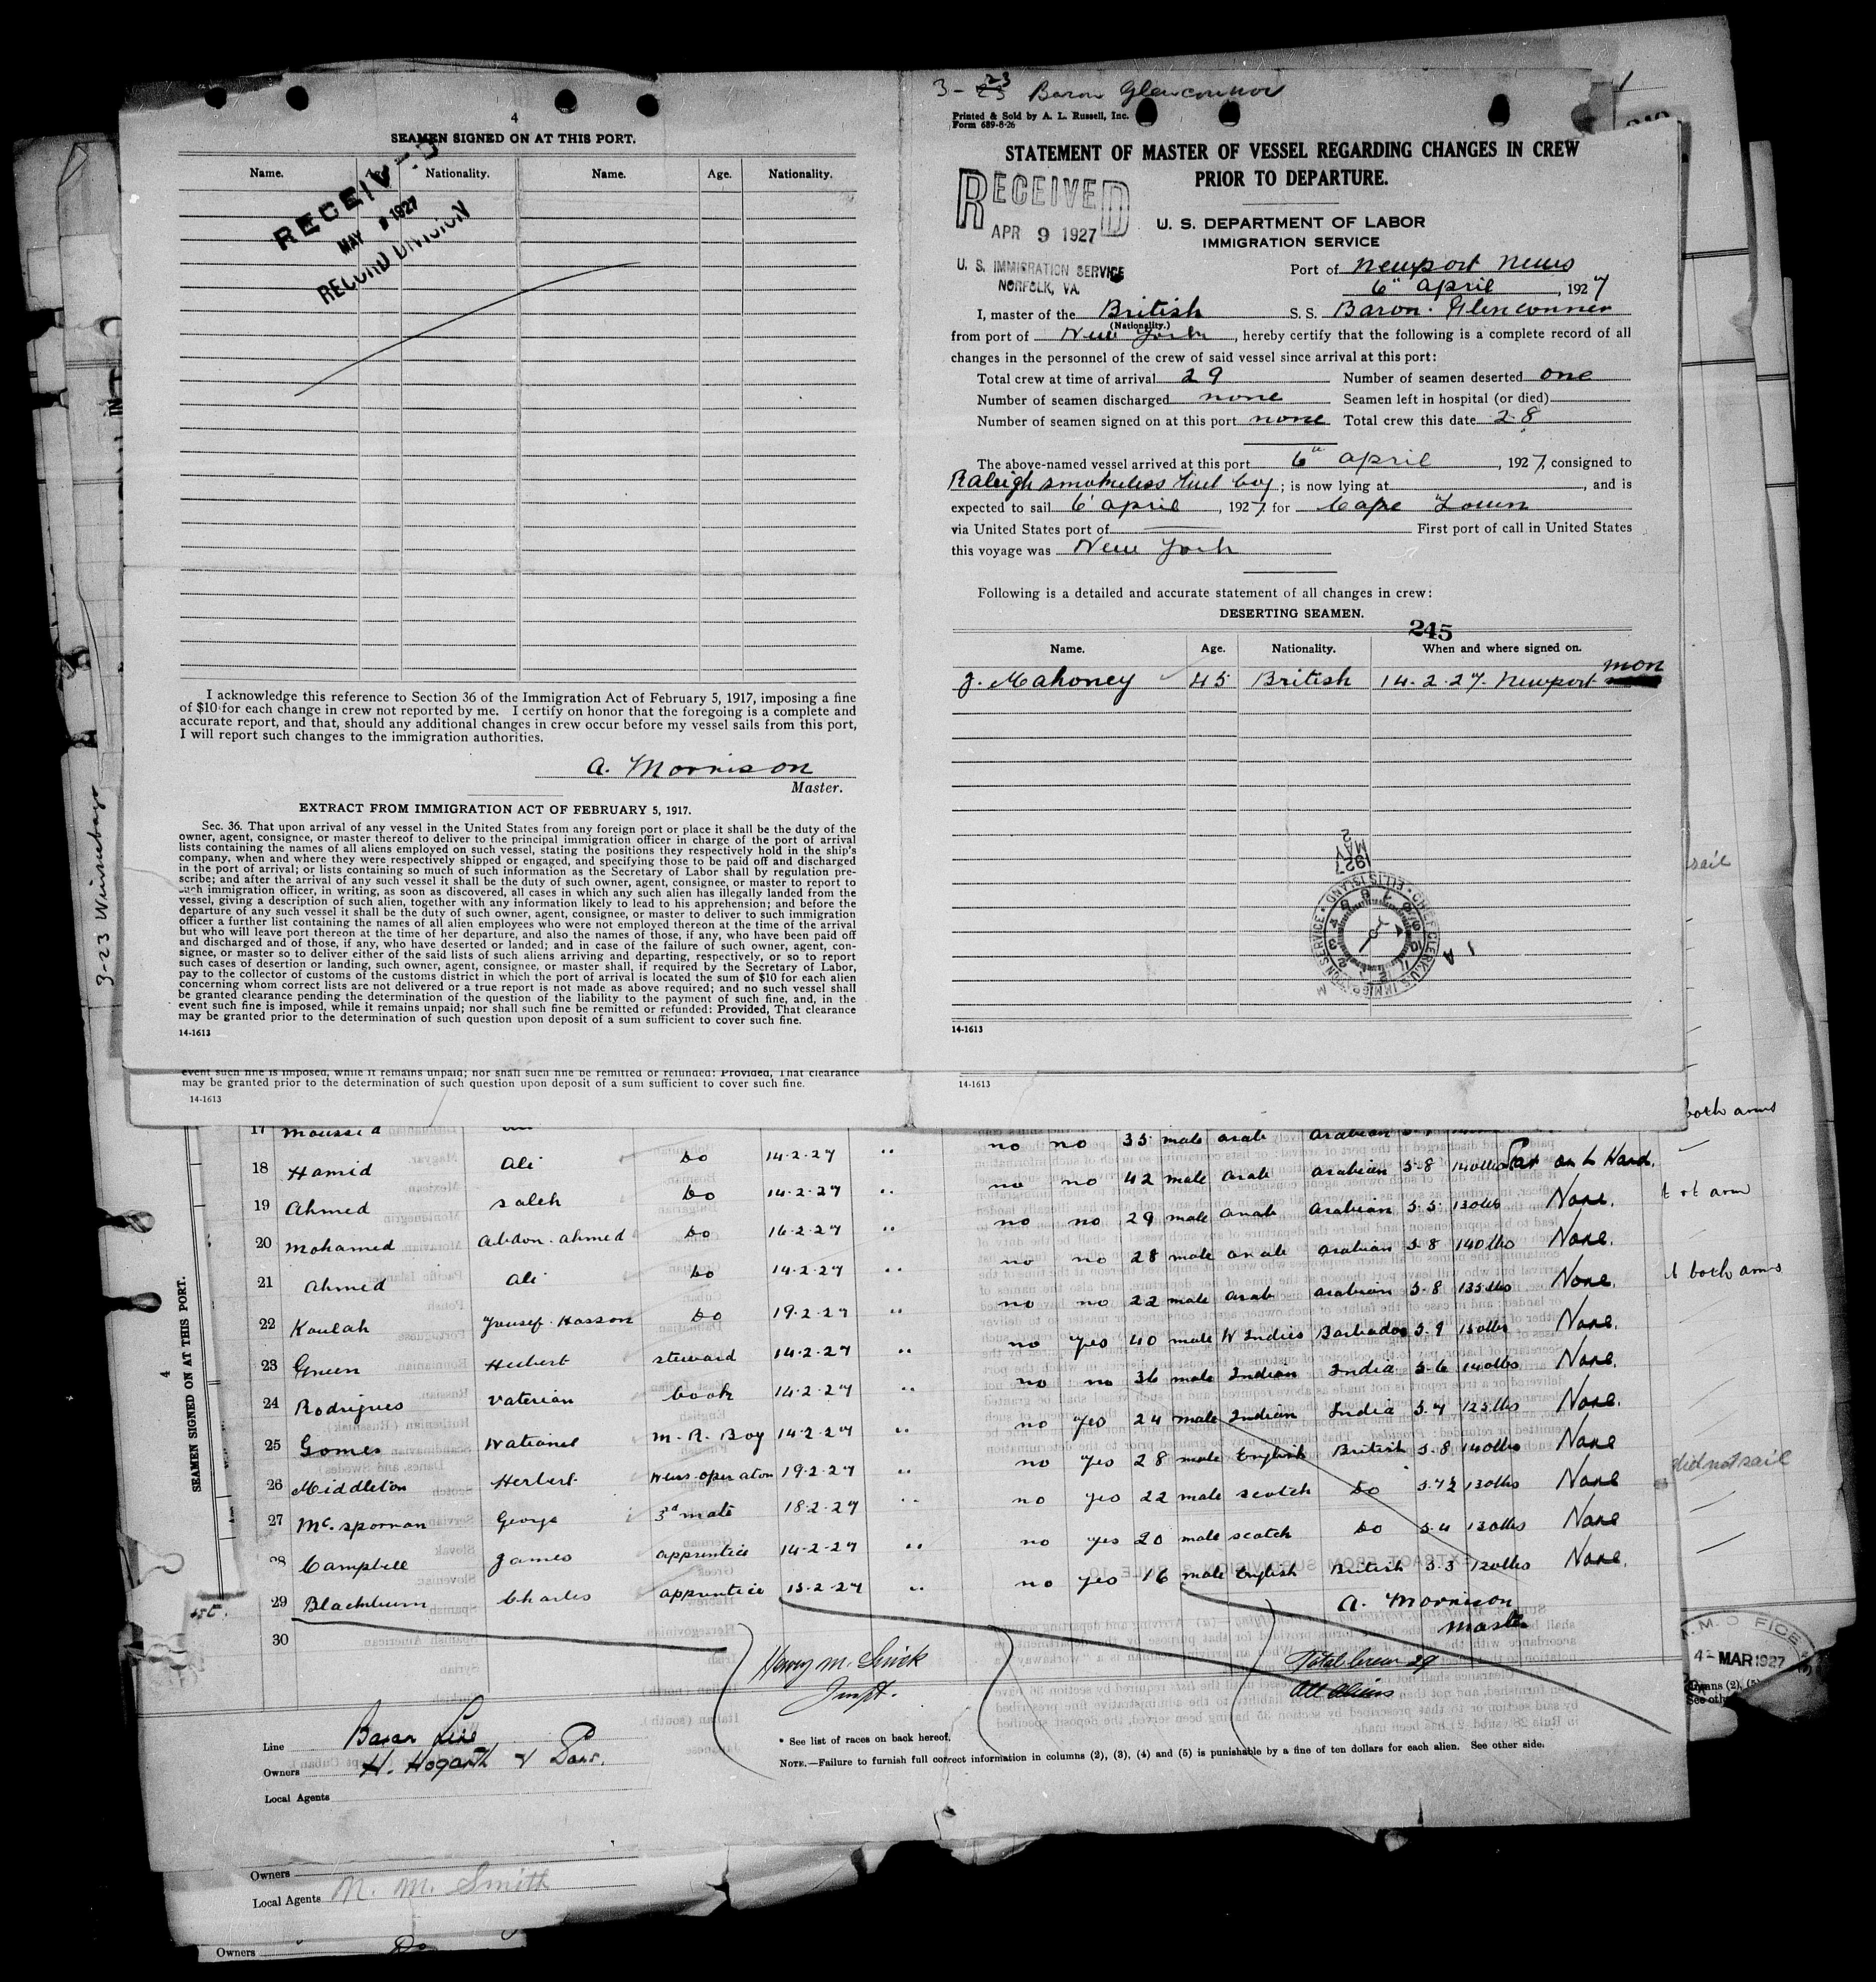 4
SEAMEN SIGNED ON AT THIS PORT.
Name. Age. Nationality. Name. Age. Nationality.
RECEIVED
MAY 1927
RECORD DIVISION
I acknowledge this reference to Section 36 of the Immigration Act of February 5, 1917, imposing a fine
of $10 for each change in crew not reported by me. I certify on honor that the foregoing is a complete and
accurate report, and that, should any additional changes in crew occur before my vessel sails from this port,
I will report such changes to the immigration authorities.
A. Morrison
Master.
EXTRACT FROM IMMIGRATION ACT OF FEBRUARY 5, 1917.
Sec. 36. That upon arrival of any vessel in the United States from any foreign port or place it shall be the duty of the
owner, agent, consignee, or master thereof to deliver to the principal immigration officer in charge of the port of arrival
lists containing the names of all aliens employed on such vessel, stating the positions they respectively hold in the ship's
company, when and where they were respectively shipped or engaged, and specifying those to be paid off and discharged
in the port of arrival; or lists containing so much of such information as the Secretary of Labor shall by regulation pre-
scribe; and after the arrival of any such vessel it shall be the duty of such owner, agent, consignee, or master to report to
such immigration officer, in writing, as soon as discovered, all cases in which any such alien has illegally landed from the
vessel, giving a description of such alien, together with any information likely to lead to his apprehension; and before the
departure of any such vessel it shall be the duty of such owner, agent, consignee, or master to deliver to such immigration
officer a further list containing the names of all alien employees who were not employed thereon at the time of the arrival
but who will leave port thereon at the time of her departure, and also the names of those, if any, who have been paid off
and discharged and of those, if any, who have deserted or landed; and in case of the failure of such owner, agent, con-
signee, or master so to deliver either of the said lists of such aliens arriving and departing, respectively, or so to report
such cases of desertion or landing, such owner, agent, consignee, or master shall, if required by the Secretary of Labor,
pay to the collector of customs of the customs district in which the port of arrival is located the sum of $10 for each alien
concerning whom correct lists are not delivered or a true report is not made as above required; and no such vessel shall
be granted clearance pending the determination of the question of the liability to the payment of such fine, and, in the
event such fine is imposed, while it remains unpaid; nor shall such fine be remitted or refunded: Provided, That clearance
may be granted prior to the determination of such question upon deposit of a sum sufficient to cover such fine.
14-1613
3-23 Baron Glenconnor
Printed & Sold by A. L. Russell, Inc.
Form 689-8-26
STATEMENT OF MASTER OF VESSEL REGARDING CHANGES IN CREW
PRIOR TO DEPARTURE.
RECEIVED
APR 9 1927
U. S. IMMIGRATION SERVICE
NORFOLK, VA.
U. S. DEPARTMENT OF LABOR
IMMIGRATION SERVICE
Port of Newport News
6" April, 1927
I, master of the British S. S. Baron Glenconner
(Nationality.)
from port of New York, hereby certify that the following is a complete record of all
changes in the personnel of the crew of said vessel since arrival at this port:
Total crew at time of arrival 29 Number of seamen deserted one
Number of seamen discharged none Seamen left in hospital (or died)
Number of seamen signed on at this port none Total crew this date 28
The above-named vessel arrived at this port 6" April, 1927, consigned to
Raleigh Smokeless Fuel Coy; is now lying at , and is
expected to sail 6 April, 1927, for Cape Town
via United States port of First port of call in United States
this voyage was New York
Following is a detailed and accurate statement of all changes in crew:
DESERTING SEAMEN.
245
Name. Age. Nationality. When and where signed on.
J. Mahoney 45 British 14-2-27 Newport Mon
1927
MAY 2
CHIEF CLERK U.S. IMMIGRATION SERVICE ELLIS ISLAND
14-1613
event such fine is imposed, while it remains unpaid; nor shall such fine be remitted or refunded: Provided, That clearance
may be granted prior to the determination of such question upon deposit of a sum sufficient to cover such fine.
14-1613
14-1613
3-23
4
SEAMEN SIGNED ON AT THIS PORT.
17 no no 35 male arab arabian
18 Hamid Ali Do 14-2-27 " no no 42 male arab arabian 5-8 140lbs Scar on L Hand.
19 Ahmed Saleh Do 14-2-27 " no no 29 male arab arabian 5-5 130lbs None.
20 Mohamed Abdon Ahmed Do 16-2-27 " no no 28 male arab arabian 5-8 140lbs None.
21 Ahmed Ali Do 14-2-27 " no no 22 male arab arabian 5-8 135lbs None.
22 Kaulah Yousef Hasson Do 19-2-27 " no yes 40 male W Indies Barbados 5-9 150lbs None.
23 Green Herbert steward 14-2-27 " no no 36 male Indian India 5-6 140lbs None.
24 Rodrigues Valerian Cook 14-2-27 " no yes 24 male Indian India 5-7 125lbs None.
25 Gomes M. R. Boy 14-2-27 " no yes 28 male English British 5-8 140lbs None
26 Middleton Herbert Wirs. operator 19-2-27 " no yes 22 male scotch Do 5-7½ 130lbs None
27 George 3d mate 18-2-27 " no yes 20 male scotch Do 5-4 130lbs None
28 Campbell James apprentice 14-2-27 " no yes 16 male English British 5-3 120lbs None.
29 Blackburn Charles apprentice 15-2-27 "
30
A. Morrison
Master
Total Crew 29
All Aliens
Line Baron Line
Owners H. Hogarth &
Local Agents
* See list of races on back hereof.
NOTE.—Failure to furnish full correct information in columns (2), (3), (4) and (5) is punishable by a fine of ten dollars for each alien. See other side.
sail
both arms
rt arm
both arms
did not sail
4- MAR 1927
Owners
Local Agents N. M. Smith
Owners Do